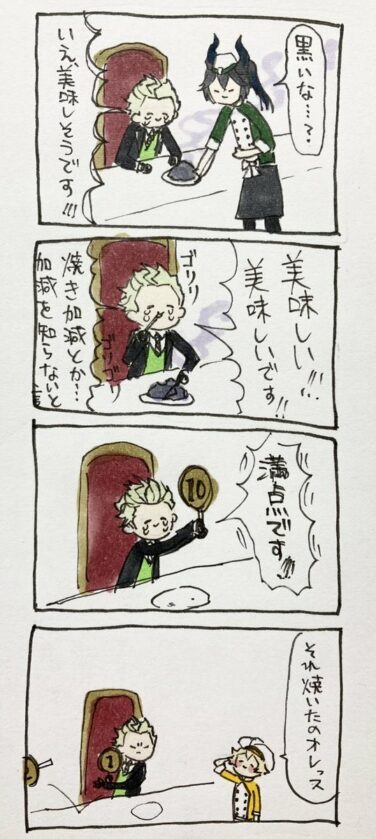 黒いな…?
いえ美味しそうです!!!
美味しい!!…
美味しいです!!
ゴリリ
ゴリゴリ
焼き加減とか…
加減を知らないと
満点です!!!
10
それ焼いたのオレっス
1